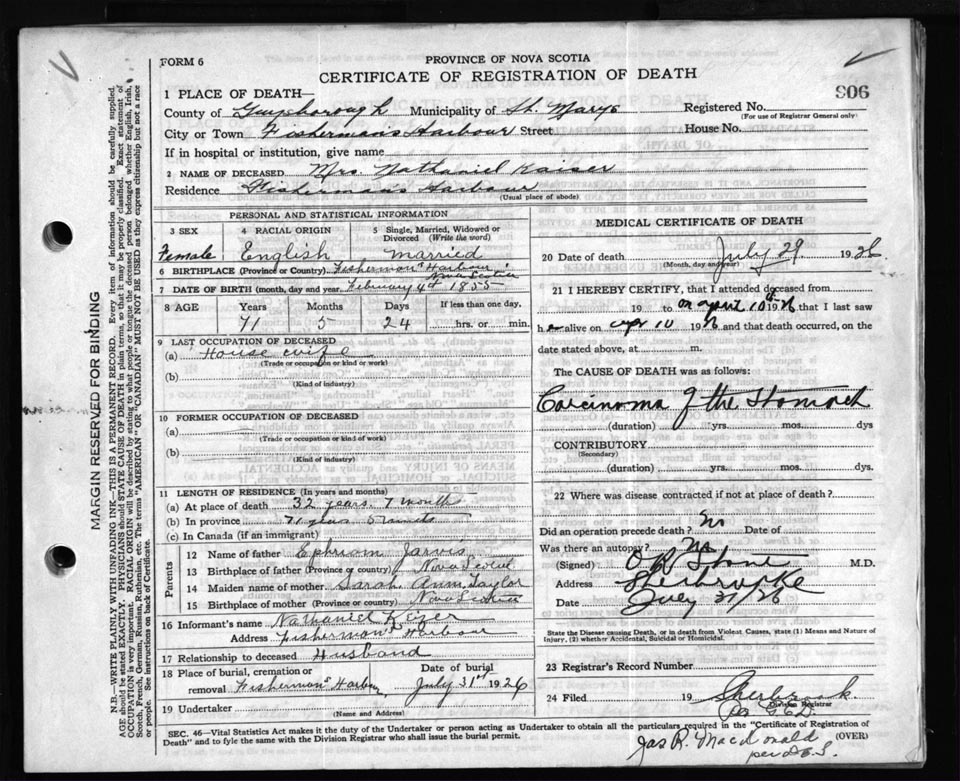 FORM 6
PROVINCE OF NOVA SCOTIA
CERTIFICATE OF REGISTRATION OF DEATH
906
1 PLACE OF DEATH—
County of Guysborough Municipality of St. Mary's Registered No.
(For use of Registrar General only)
City or Town Fisherman's Harbour Street House No.
If in hospital or institution, give name
2 NAME OF DECEASED Mrs Nathaniel Kaiser
Residence Fisherman's Harbour
(Usual place of abode)
PERSONAL AND STATISTICAL INFORMATION
3 SEX 4 RACIAL ORIGIN 5 Single, Married, Widowed or Divorced (Write the word)
Female English Married
6 BIRTHPLACE (Province or Country) Fisherman's Harbour Nova Scotia
7 DATE OF BIRTH (month, day and year) February 4th 1855
8 AGE Years Months Days If less than one day,
71 5 24 hrs. or min.
9 LAST OCCUPATION OF DECEASED
(a) House wife
(Trade or occupation or kind or work)
(b)
(Kind of industry)
10 FORMER OCCUPATION OF DECEASED
(a)
(Trade or occupation or kind of work)
(b)
(Kind of Industry)
11 LENGTH OF RESIDENCE (In years and months)
(a) At place of death 32 years 7 months
(b) In province 71 years 5
(c) In Canada (if an immigrant)
Parents
12 Name of father Ephriam Jarvis
13 Birthplace of father (Province or country) Nova Scotia
14 Maiden name of mother Sarah Ann Taylor
15 Birthplace of mother (Province or country) Nova Scotia
16 Informant's name Nathaniel
Address Fisherman's Harbour
17 Relationship to deceased Husband
18 Place of burial, cremation or Date of burial
removal Fisherman's Harbour July 31st 1926
19 Undertaker
(Name and Address)
MEDICAL CERTIFICATE OF DEATH
20 Date of death July 29 1926
(Month, day and year)
21 I HEREBY CERTIFY, that I attended deceased from
19 to on april 10th 1926 that I last saw
h alive on apr 10 1926 and that death occurred, on the
date stated above, at m.
The CAUSE OF DEATH was as follows:
Carcinoma of the Stomach
(duration) yrs. mos. dys
CONTRIBUTORY
(Secondary)
(duration) yrs. mos. dys.
22 Where was disease contracted if not at place of death?
Did an operation precede death? No Date of
Was there an autopsy? No
(Signed) M.D.
Address Sherbrooke
Date July 31/26
State the Disease causing Death, or in death from Violent Causes, state (1) Means and Nature of
Injury, (2) whether Accidental, Suicidal or Homicidal.
23 Registrar's Record Number
24 Filed 19 Sherbrook
Division Registrar
SEC. 46—Vital Statistics Act makes it the duty of the Undertaker or person acting as Undertaker to obtain all the particulars required in the "Certificate of Registration of
Death" and to fyle the same with the Division Registrar who shall issue the burial permit.
(OVER)
Jas R. MacDonald
per
MARGIN RESERVED FOR BINDING
N.B.—WRITE PLAINLY WITH UNFADING INK—THIS IS A PERMANENT RECORD. Every item of information should be carefully supplied.
AGE should be stated EXACTLY. PHYSICIANS should STATE CAUSE OF DEATH in plain terms, so that it may be properly classified. Exact statement of
OCCUPATION is very important. RACIAL ORIGIN will be described by stating to what people or tongue the deceased person belonged whether English, Irish,
Scotch, French, German, Russian, Ruthenian, etc. The terms "AMERICAN" OR "CANADIAN" MUST NOT BE USED as they express citizenship but not a race
or people. See instructions on back of Certificate.